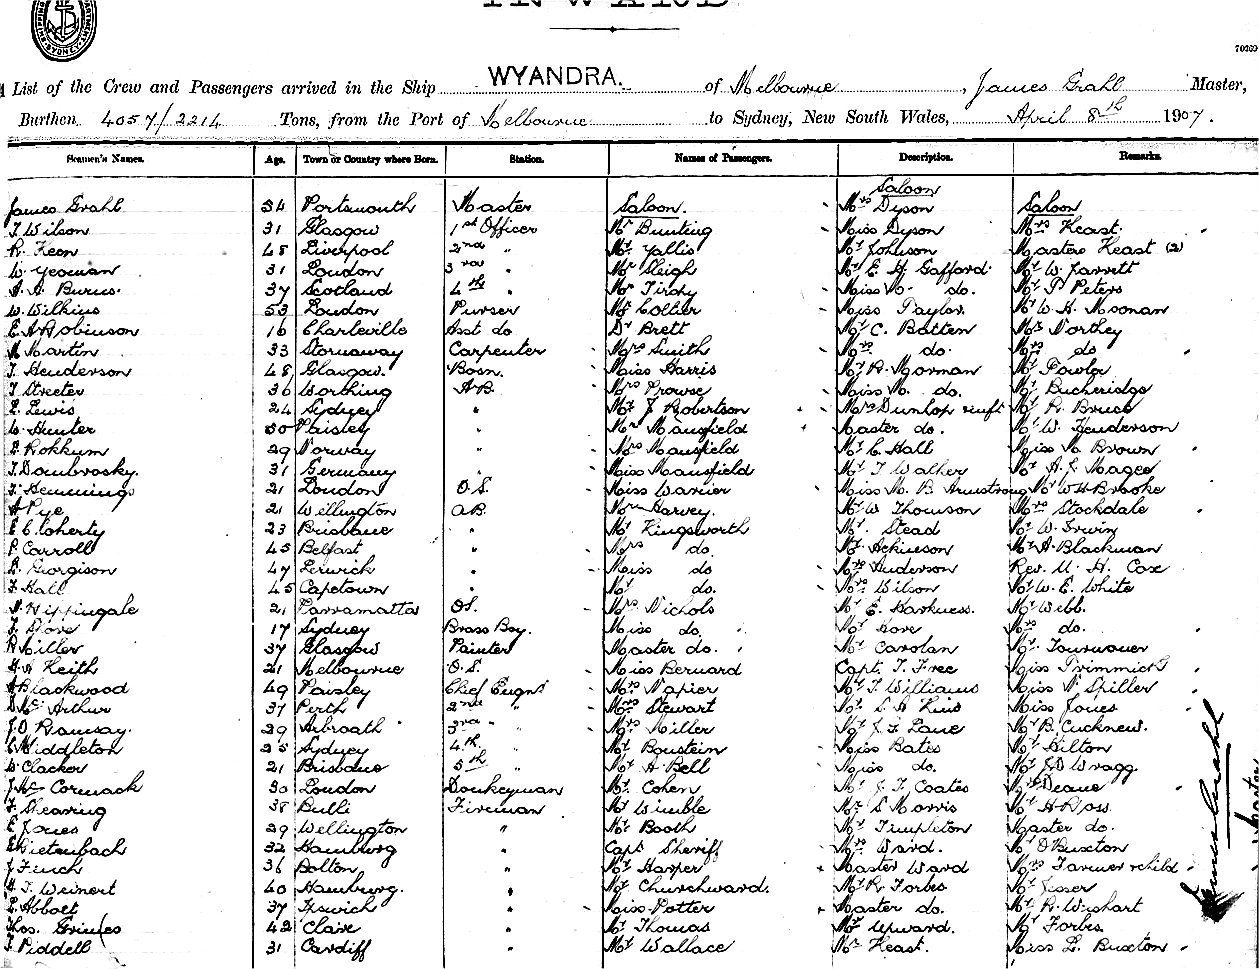 INWARD
70269
List of the Crew and Passengers arrived in the Ship WYANDRA. of Melbourne, James Grahl Master,
Burthen 4057/2214 Tons, from the Port of Melbourne to Sydney, New South Wales, April 8th 1907.
Seamen's Names. Age. Town or Country where Born. Station. Names of Passengers. Description. Remarks.
Saloon
James Grahl 54 Portsmouth Master Saloon. Mrs Dyson Saloon
T Wilson 31 Glasgow 1st Officer Mr Bunting Miss Dyson Mrs Keast.
R. Keen 48 Liverpool 2nd " Mr Yallis Mr Johnson Masters Keast (2)
W Yeoman 31 London 3rd Mr Sleigh Mr E. H. Gafford. Mr W. Jarrett
A. A. Burns. 37 Scotland 4th " Mr Tirdy Miss do. Mr Peters
W. Wilkins 53 London Purser Mr Collier Miss Taylor. Mr W. H. Moonan
E A Robinson 16 Charleville Asst do Dr Brett Mr C. Batten Mrs Northey
M Martin 33 Stornaway Carpenter Mrs Smith Mrs do. Mrs do
T Henderson 48 Glasgow. Bosn. Miss Harris Mr R. Norman Mr Fowler
T Streeter 36 Worthing A.B. Mrs Prowse Miss M. do. Mr Bucheridge
E. Lewis 24 Sydney " Mr J Robertson Mrs Dunlop & inft Mr R. Bruce
W Hunter 30 Paisley " Mr Mansfield Master do. Mr W. Henderson
Rokkum 29 Norway " Mrs Mansfield Mr C. Hall Miss M. Brown
J. Dombrosky. 31 Germany " Miss Mansfield Mr T Walker Mr H. J. Magee
Hemmings 21 London O.S. Miss Warner Miss M. B. Armstrong Mr W H Brooke
A Pye 21 Wellington A.B. Harvey. Mr W Thomson Mrs Stockdale
E Cloherty 23 Brisbane " Mr Kingsworth Mr. Stead Mr W. Irwin
P Carroll 45 Belfast " Mrs do. Mr Ackinson Mr A. Blackman
Georgison 47 Lerwick " Miss do Mrs Anderson Rev. U. H. Cox
F Hall 45 Capetown " Mr do. Mrs Wilson Mr W. E. White
Nippingale 21 Parramatta O.S. Mrs Nichols Mr E. Harkness. Mr Webb.
17 Sydney Brass Boy. Miss do. Mr Hore Mrs do.
R Miller 37 Glasgow Painter Master do. Mr Carolan Mr Tournouer
Keith 21 Melbourne O.S. Miss Bernard Capt. T. Free Miss Trimmick
A Blackwood 49 Paisley Chief Engnr Mrs Napier Mr T Williams Miss N Spiller
D McArthur 37 Perth 2nd " Mrs Stewart Mr King Miss Jones
J. D Ramsay. 29 Arbroath 3rd " Mrs Miller Mr J. F Lane Mr B. Cucknew.
Middleton 25 Sydney 4th. " Mr Boustein Miss Bates Mr Hilton
W. Clacker 21 Brisbane 5th " Mr A Bell Miss do. Mr J. D Wragg
J. McCormack 30 London Donkeyman Mr Cohen Mr J. T Coates Mr Deane
T. Shearing 38 Bulli Fireman Mr Wimble Mr S Morris Mr H Ross
Jones 29 Wellington " Mr Booth Mr Timpleton Master do.
Dietenbach 32 Hamburg " Capt Sheriff Mrs Ward. Mr D Buxton
J Finch 36 Bolton " Mr Harper Master Ward Mrs Farmer & child
T. Weinert 40 Hamburg. " Mr Churchward. Mr R. Forbes Mr Jisser
E. Abbott 37 Ipswich " Miss Potter Master do. Mr R. Wishart
Thos. Grimes 42 Clare " Mr Thomas Mr Upward. Mr Forbes
Piddell 31 Cardiff " Mr Wallace Mr Keast. Miss L. Buxton
James Grahl
Master